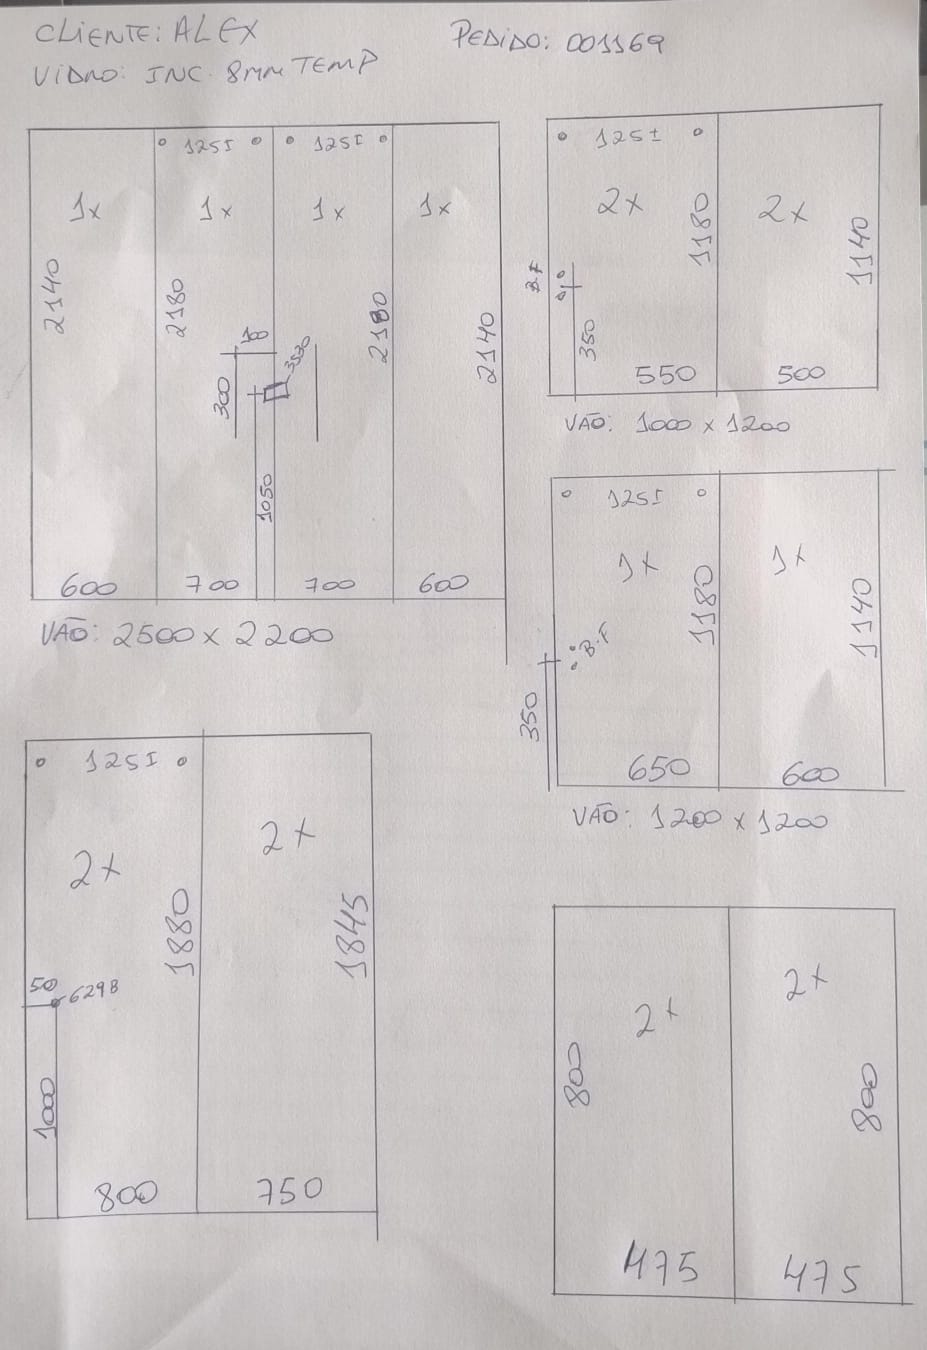 CLIENTE: ALEX
PEDIDO: 001169
VIDRO: INC. 8MM TEMP
125I 125I
1x 1x 1x 1x
2140
2180
2180
2140
100
300
3520
1050
600 700 700 600
VÃO: 2500 x 2200
125I
2x 2x
1180
1140
B.F
350
550 500
VÃO: 1000 x 1200
125I
1x 1x
1180
1140
B.F
350
650 600
VÃO: 1200 x 1200
125I
2x 2x
1880
1845
50
629B
1000
800 750
2x 2x
800
800
475 475